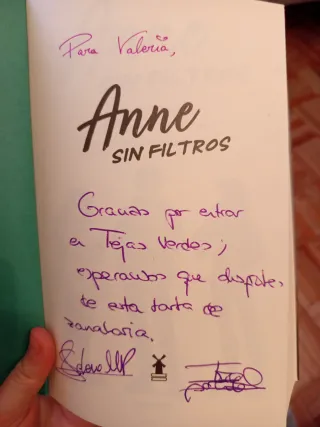 Para Valeria,
Anne
SIN FILTROS
Gracias por entrar
en Tejas Verdes;
esperamos que disfrutes
de esta tarta de
zanahoria.